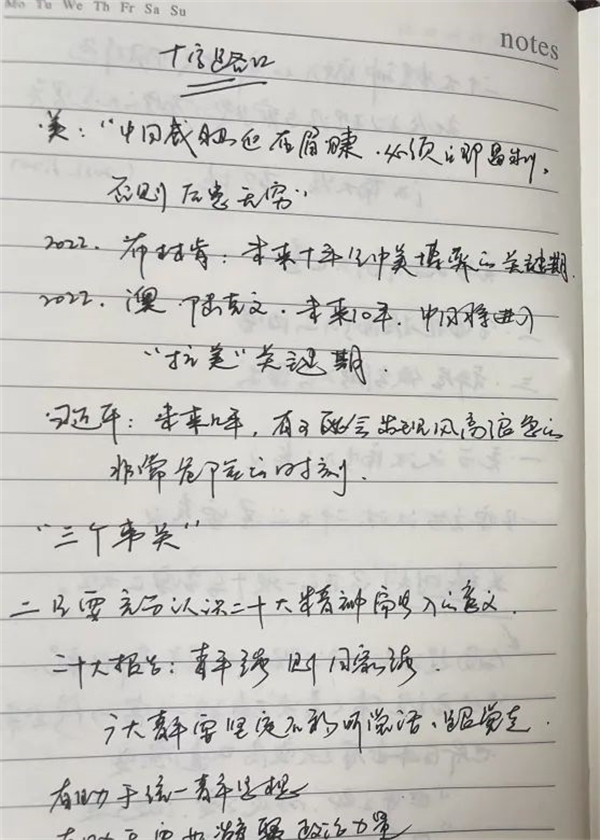 Mo Tu We Th Fr Sa Su
notes
十字路口
美：“中国威胁迫在眉睫，必须立即遏制，
否则后患无穷”
2022. 布林肯：未来十年是中美博弈的关键期.
2022. 澳·陆克文. 未来10年. 中国将进入
“抗美”关键期.
习近平：未来几年，有可能会出现风高浪急的
非常危险的时刻.
“三个事关”
二是要充分认识二十大精神
二十大报告：青年强则国家强.
广大青年要坚定不移听党话、跟党走.
有助于统一青年思想
有助于